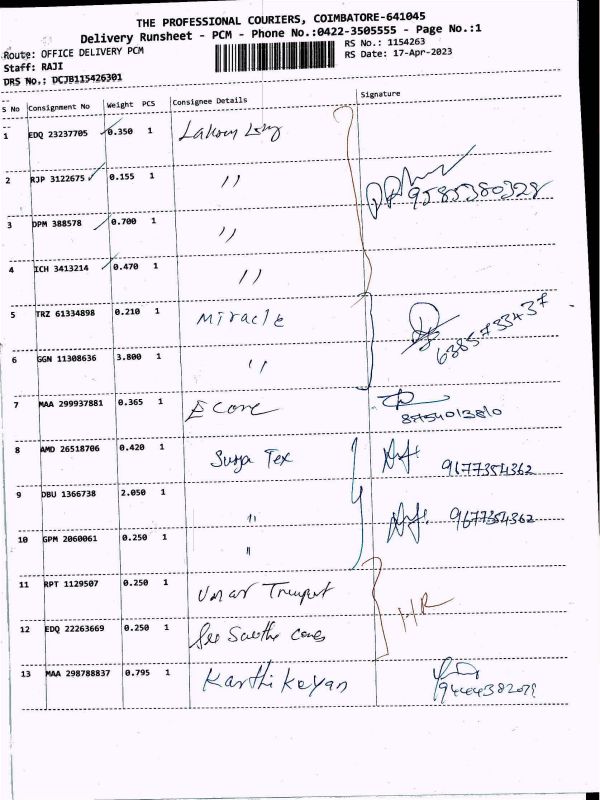 THE PROFESSIONAL COURIERS, COIMBATORE-641045
Delivery Runsheet - PCM - Phone No.:0422-3505555 - Page No.:1
Route: OFFICE DELIVERY PCM
RS No.: 1154263
Staff: RAJI
RS Date: 17-Apr-2023
DRS No.: DCJB115426301
S No Consignment No Weight PCS Consignee Details Signature
1 EDQ 23237705 0.350 1
2 RJP 3122675 0.155 1 " 9585380328
3 DPM 388578 0.700 1 "
4 ICH 3413214 0.470 1 "
5 TRZ 61334898 0.210 1 Miracle
6 GGN 11308636 3.800 1 " 6385733437
7 MAA 299937881 0.365 1 Ecore 8754013810
8 AMD 26518706 0.420 1 Surya Tex 9677354362
9 DBU 1366738 2.050 1 " 9677354362
10 GPM 2060061 0.250 1 "
11 RPT 1129507 0.250 1
12 EDQ 22263669 0.250 1
13 MAA 298788837 0.795 1 Karthikeyan